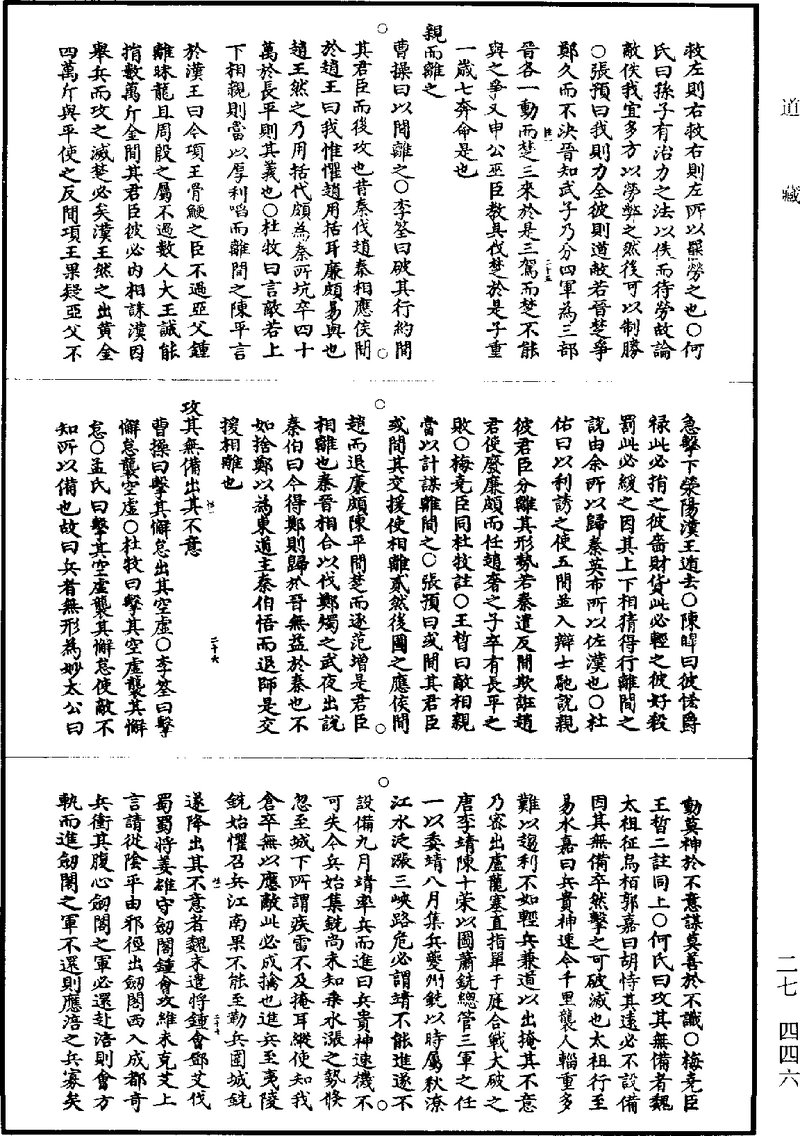 道藏
救左則右救右則左所以罷勞之也○何
氏曰孫子有治力之法以佚而待勞故論
敵佚我宜多方以勞弊之然後可以制勝
○張預曰我則力全彼則道敝若晉楚爭
鄭久而不決晉知武子乃分四軍為三部
二十五
晉各一動而楚三來於是三駕而楚不能
與之爭又申公巫臣教吳伐楚於是子重
一歲七奔命是也
親而離之
曹操曰以間離之○李筌曰破其行約間
其君臣而後攻也昔秦伐趙秦相應侯間
於趙王曰我惟懼趙用括耳廉頗易與也
趙王然之乃用括代頗為秦所坑卒四十
萬於長平則其義也○杜牧曰言敵若上
下相親則當以厚利啗而離間之陳平言
於漢王曰今項王骨鯁之臣不過亞父鍾
離昧龍且周殷之屬不過數人大王誠能
捐數萬斤金間其君臣彼必內相誅漢因
舉兵而攻之滅楚必矣漢王然之出黃金
四萬斤與平使之反間項王果疑亞父不
急擊下滎陽漢王遁去○陳皞曰彼恡爵
祿此必捐之彼嗇財貨此必輕之彼好殺
罰此必緩之因其上下相猜得行離間之
說由余所以歸秦英布所以佐漢也○杜
佑曰以利誘之使五間並入辯士馳說親
彼君臣分離其形勢若秦遣反間欺誑趙
君使廢廉頗而任趙奢之子卒有長平之
敗○梅堯臣同杜牧註○王晳曰敵相親
當以計謀離間之○張預曰或間其君臣
或間其交援使相離貳然後圖之應侯間
趙而退廉頗陳平間楚而逐范增是君臣
相離也秦晉相合以伐鄭燭之武夜出說
秦伯曰今得鄭則歸於晉無益於秦也不
如捨鄭以為東道主秦伯悟而退師是交
援相離也
二十六
攻其無備出其不意
曹操曰擊其懈怠出其空虛○李筌曰擊
懈怠襲空虛○杜牧曰擊其空虛襲其懈
怠○孟氏曰擊其空虛襲其懈怠使敵不
知所以備也故曰兵者無形為妙太公曰
動莫神於不意謀莫善於不識○梅堯臣
王晳二註同上○何氏曰攻其無備者魏
太祖征烏桓郭嘉曰胡恃其遠必不設備
因其無備卒然擊之可破滅也太祖行至
易水嘉曰兵貴神速今千里襲人輜重多
難以趨利不如輕兵兼道以出掩其不意
乃密出盧龍塞直指單于庭合戰大破之
唐李靖陳十策以圖蕭銑總管三軍之任
一以委靖八月集兵夔州銑以時屬秋潦
江水泛漲三峽路危必謂靖不能進遂不
設備九月靖率兵而進曰兵貴神速機不
可失今兵始集銑尚未知乘水漲之勢倏
忽至城下所謂疾雷不及掩耳縱使知我
倉卒無以應敵此必成擒也進兵至夷陵
銑始懼召兵江南果不能至勒兵圍城銑
二十七
遂降出其不意者魏末遣將鍾會鄧艾伐
蜀蜀將姜維守劒閣鍾會攻維未克艾上
言請從陰平由邪徑出劒閣西入成都奇
兵衝其腹心劒閣之軍必還赴涪則會方
軌而進劒閣之軍不還則應涪之兵寡矣
二七 四四六